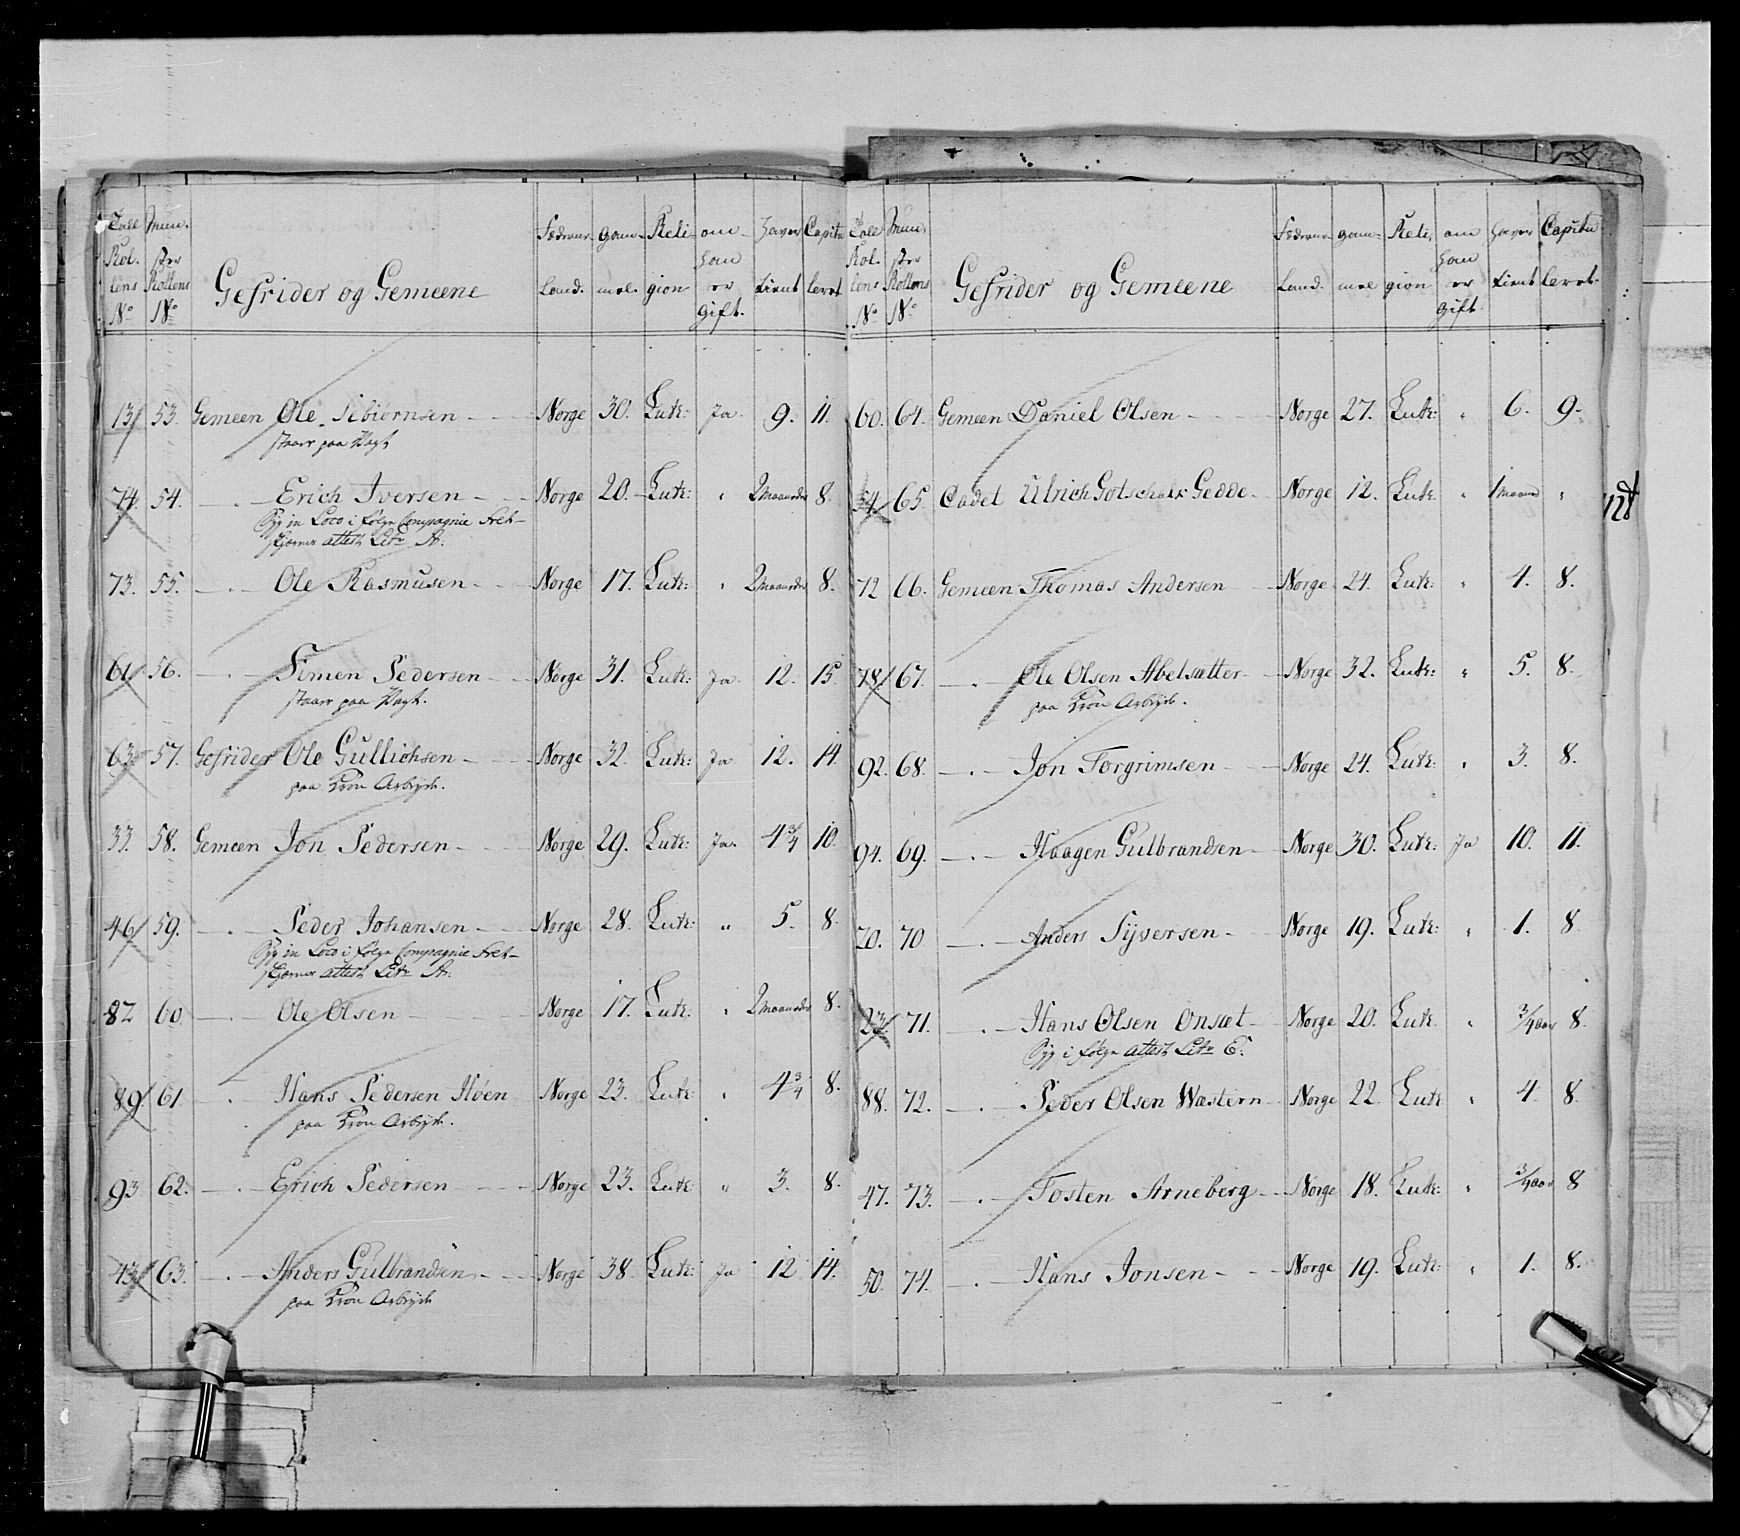 Tall Rollens No | Mun. ster Rollens No | Gefrider og Gemeene | Føderne Land. | gammel. | Religion | om han er gift. | haver tient | Capitu leret
13 53 Gemeen Ole Sebiørnsen - Norge 30. Luth: Ja 9. 11.
staar paa Vagt
74. 54. - Erich Iversen - Norge 20. Luth: " 2 maaneder 8.
Syg in Loco i følge Compagnie Feldt-
skjærer attest Litr A.
73. 55. - Ole Rasmusen - Norge 17. Luth: " 2 maaneder 8.
61 56. - Simen Pedersen - Norge 31. Luth: Ja 12. 15.
staar paa Vagt.
63 57. Gefrider Ole Gullichsen - Norge 32. Luth: Ja 12. 14.
paa Kron Arbeyde.
33. 58. Gemeen Jon Pedersen - Norge 29. Luth: Ja. 4 3/4 10.
46 59. - Peder Johansen - Norge 28. Luth: " 5. 8.
Syg in Loco i følge Compagnie Feldt-
skjærer attest Litr A.
82 60 - Ole Olsen - Norge 17. Luth: " 2 maaneder 8.
89. 61 - Hans Pedersen Høen Norge 23. Luth: " 4 3/4 8.
paa Kron Arbeyde.
93 62. - Erich Pedersen - Norge 23. Luth: " 3. 8.
43 63. - Anders Gulbrandsen - Norge 38. Luth: Ja 12 14.
paa Kron Arbeyde
Tall Rollens No | Mun. ster Rollens No | Gefrider og Gemeene | Føderne Land. | gammel | Religion | om han er gift. | haver tient | Capitu leret.
60. 64. Gemeen Daniel Olsen - Norge 27. Luth: " 6. 9.
54 65. Cadet Ulrich Gotschalk Gedde - Norge 12. Luth. " 1 maaned "
72 66. Gemeen Thomas Andersen Norge 24. Luth: " 4. 8.
78 67. - Ole Olsen Abelsætter - Norge 32. Luth: " 5. 8.
paa Kron Arbeyde.
92. 68. - Jon Torgrimsen - Norge 24. Luth: " 3. 8.
94. 69. - Haagen Gulbrandsen - Norge 30. Luth: Ja 10. 11.
20. 70 - Anders Syversen - Norge 19. Luth: " 1. 8
23. 71. - Hans Olsen Onsæt - Norge 20. Luth " 3/4 aar 8.
Syg i følge attest Litr E.
88. 72. - Peder Olsen Wæstern - Norge 22. Luth " 4 8.
47. 73. - Tosten Arneberg - Norge 18. Luth: " 3/4 aar 8
50. 74. - Hans Jonsen - Norge 19. Luth: " 1. 8.